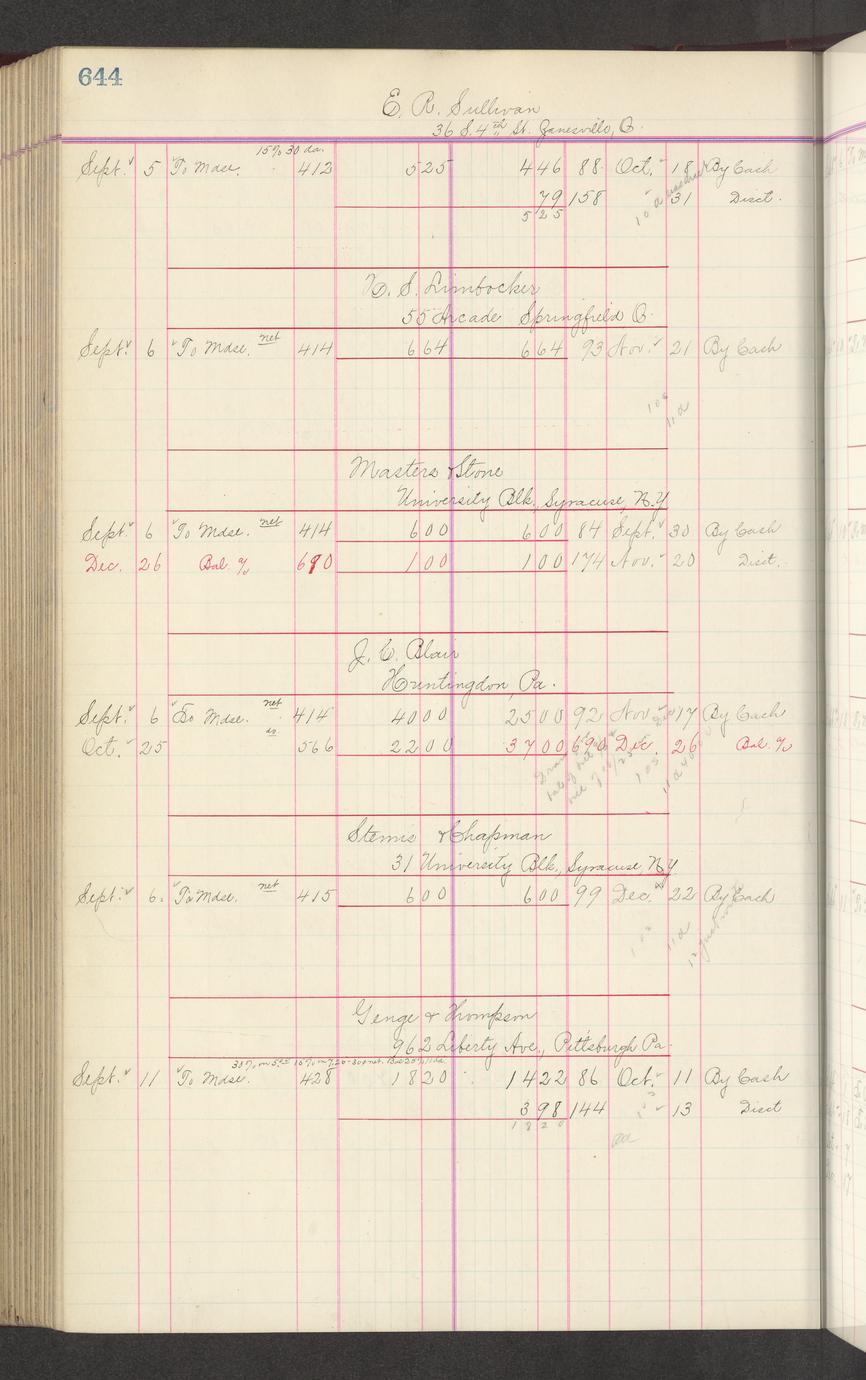 644
E. R. Sullivan
36 S. 4th St. Zanesville, O.
15% 30 da.
Sept. 5 To Mdse. 412 525 446 88 Oct. 18 By Cash
79 158 " 31 Disct.
525
N. S. Limbocker
55 Arcade Springfield O.
Sept. 6 To Mdse. net 414 664 664 93 Nov. 21 By Cash
Masters & Stone
University Blk., Syracuse, N.Y
Sept. 6 To Mdse. net 414 600 600 84 Sept. 30 By Cash
Dec. 26 Bal. % 690 100 100 174 Nov. 20 Disct.
J. C. Blair
Huntingdon, Pa.
Sept. 6 To Mdse. net 414 4000 2500 92 Nov. 17 By Cash
Oct. 25 ds. 566 2200 3700 690 Dec. 26 Bal. %
& Chapman
31 University Blk., Syracuse N.Y
Sept. 6. To Mdse. net 415 600 600 99 Dec. 22 By Cash
Genge & Thompson
962 Liberty Ave., Pittsburgh Pa.
Sept. 11 To Mdse. 428 1820 1422 86 Oct. 11 By Cash
398 144 " 13 Disct
1820